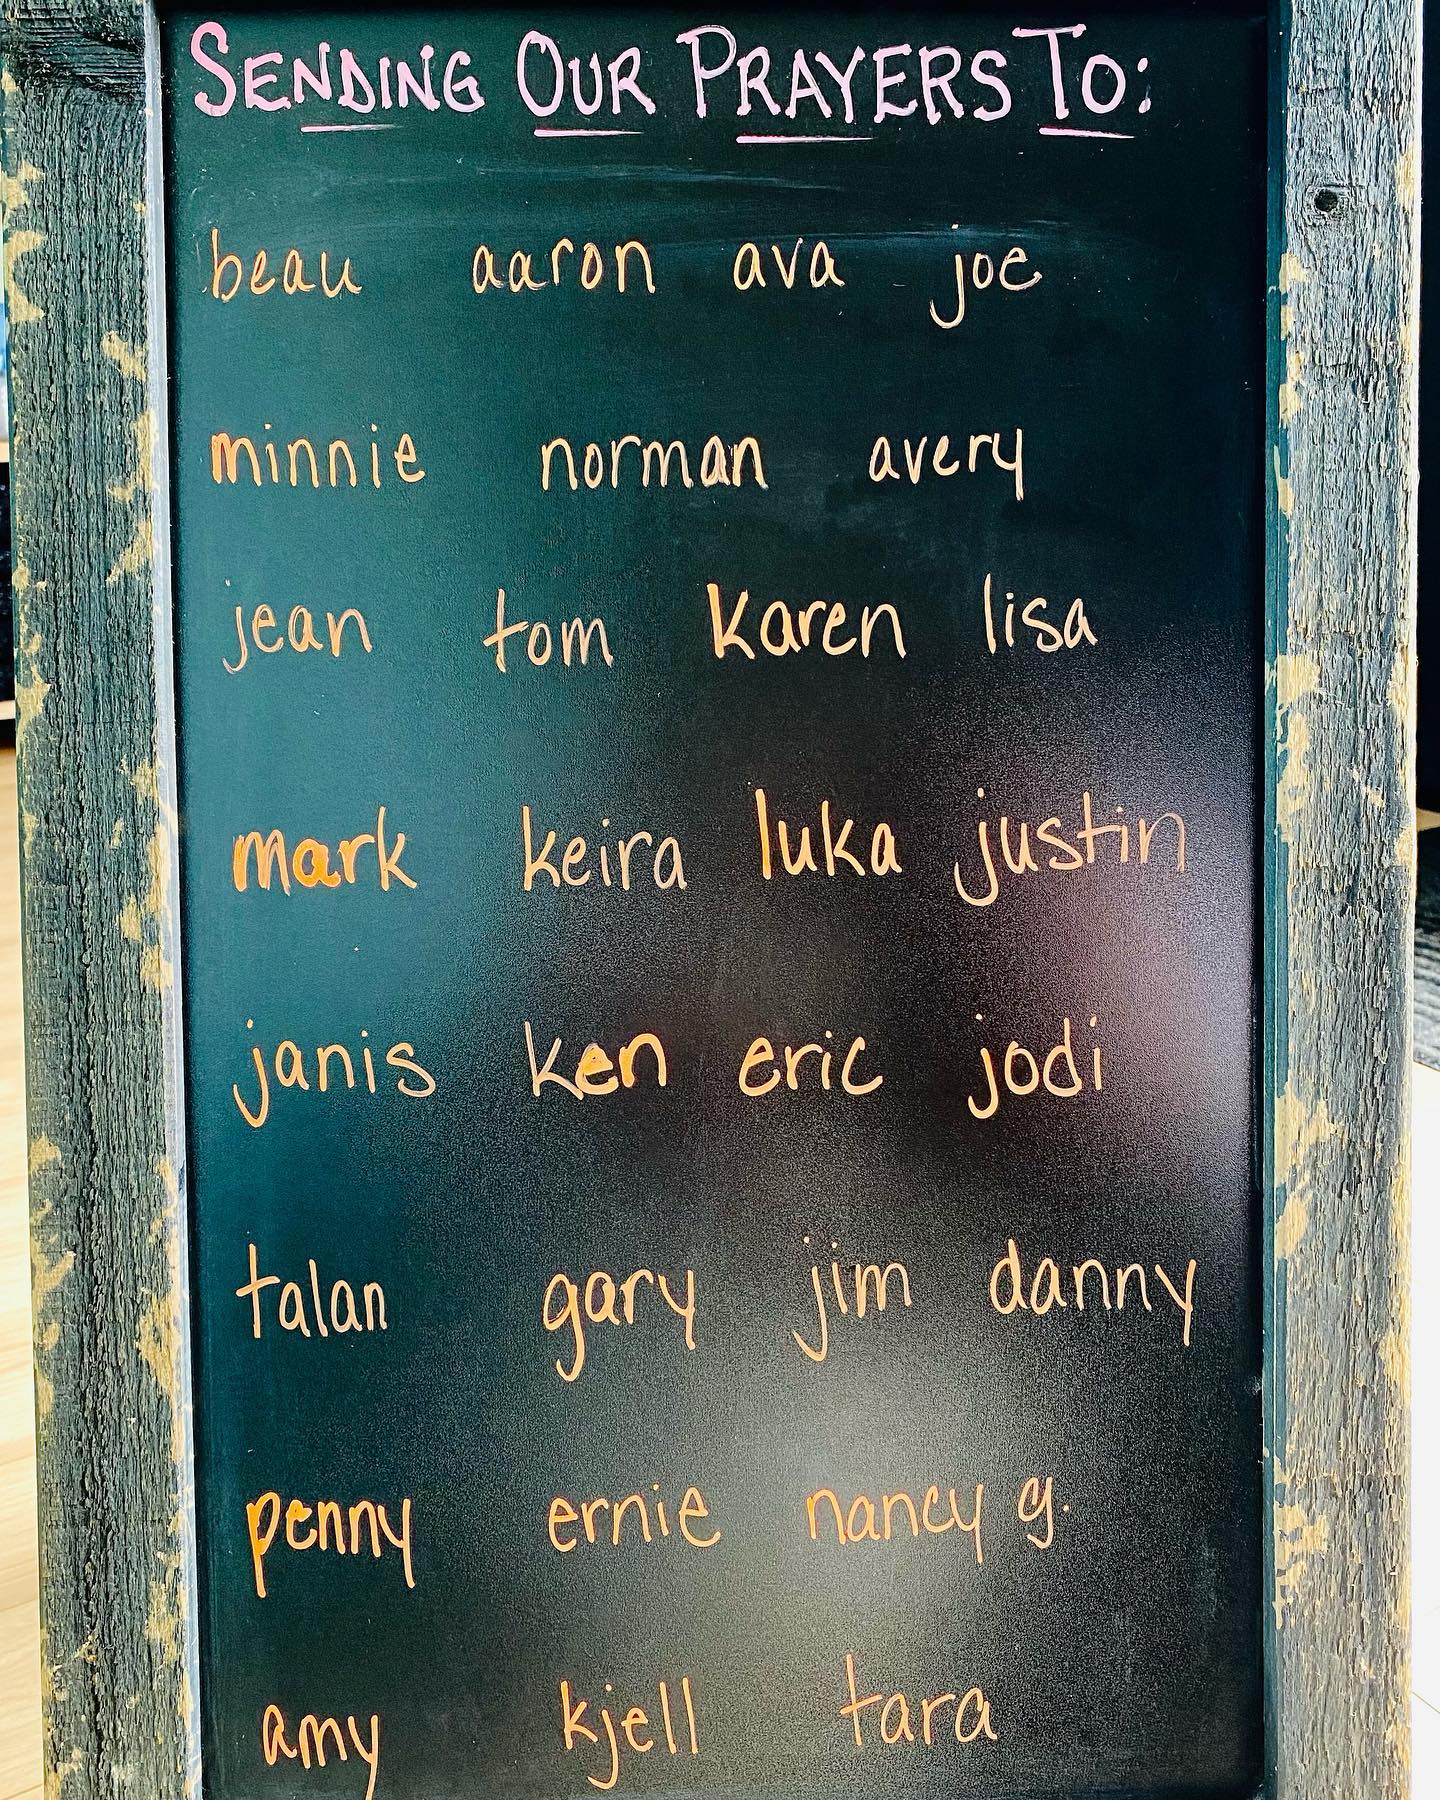 SENDING OUR PRAYERS TO:
beau aaron ava joe
minnie norman avery
jean tom karen lisa
mark keira luka justin
janis ken eric jodi
talan gary jim danny
penny ernie nancy g.
amy kjell tara